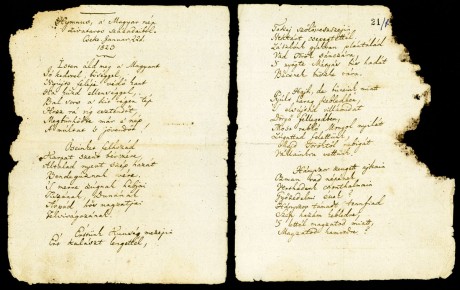 Hymnus, a' Magyar nép
zivataros századaiból.
Cseke, Januar. 22d.
1823
Isten áldd meg a' Magyart
Jó kedvvel, bőséggel,
Nyújts feléje védő kart
Ha küzd ellenséggel,
Bal sors a' kit régen tép
Hozz reá víg esztendőt,
Megbünhődte már e' nép
A' multat 's jövendőt.
Őseinket felhozád
Kárpát szent bérczére,
Általad nyert szép hazát
Bendegúznak vére.
'S merre zúgnak habjai
Tiszának, Dunának,
Árpád hős magzatjai
Felvirágozának.
Értünk Kunság mezejin
Ért kalászt lengettél,
21/
Tokaj szőlővesszejin
Nektárt csepegtettél.
Zászlónk gyakran plántálád
Vad Török sánczára,
'S nyögte Mátyás bús hadát
Bécsnek büszke vára.
Hajh, de büneink miatt
Gyúlt harag kebledben,
'S elsújtád villámidat
Dörgő fellegedben,
Most rabló Mongol nyilát
Zúgattad felettünk,
Majd Töröktől rabigát
Vállainkra vettünk.
Hányszor zengett ajkain
Ozman vad népének
Vert hadunk csonthalmain
Győzedelmi ének!
Hányszor támadt tenfiad
Szép hazám kebledre,
'S lettél magzatod miatt
Magzatod hamvedre!